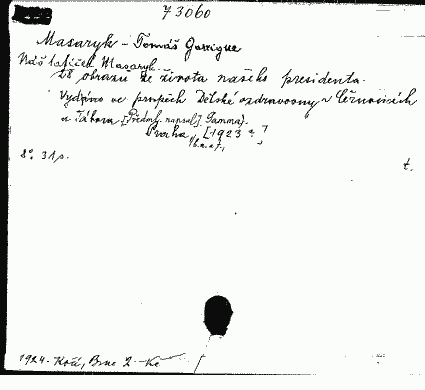 73060
Masaryk - Tomáš Garrigue
Náš tatíček Masaryk.
28 obrazů ze života našeho presidenta.
Vydáno ve prospěch Dětské ozdravovny v Černovicích
u Tábora [Předml. napsal] Gamma).
Praha, [1923 ? ]
8°. 31 s.
t.
1924. Kočí, Brno 2 Kč